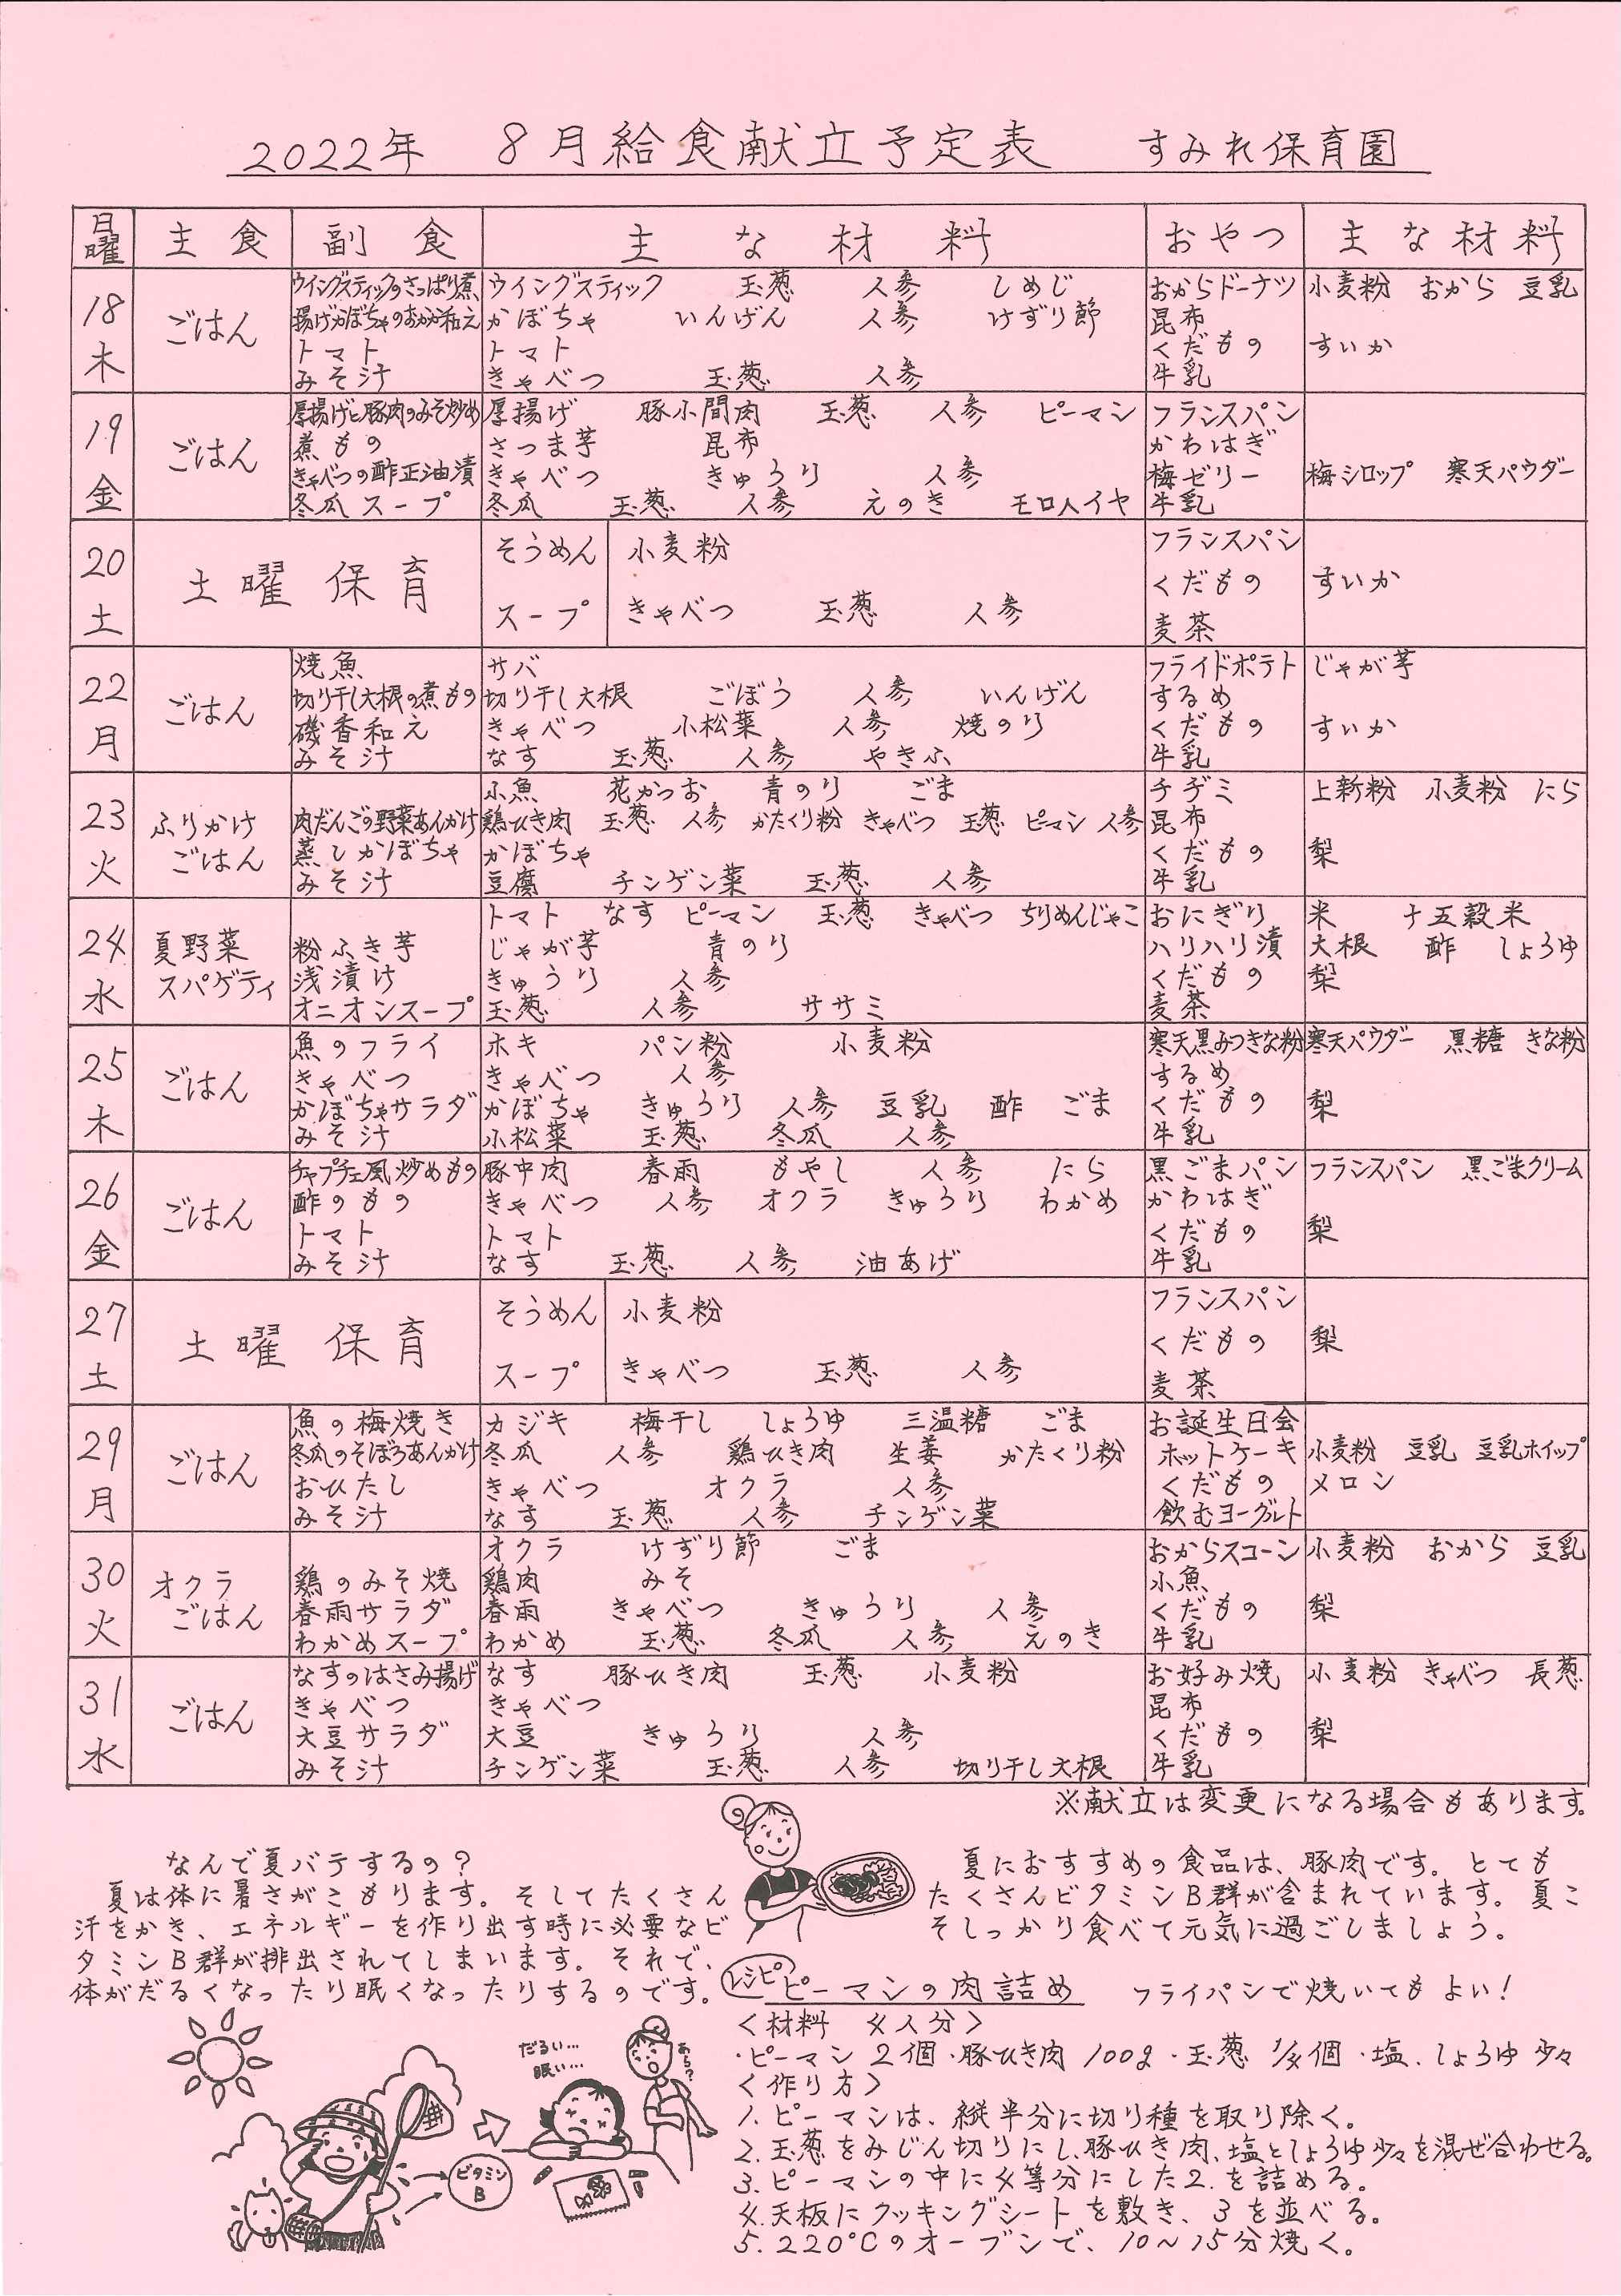 2022年 8月給食献立予定表 すみれ保育園
日曜 主食 副食 主な材料 おやつ 主な材料
18 木 ごはん
ウイングスティックのさっぱり煮 ウイングスティック 玉葱 人参 しめじ おからドーナツ 小麦粉 おから 豆乳
揚げかぼちゃのおかか和え かぼちゃ いんげん 人参 けずり節 昆布
トマト トマト くだもの すいか
みそ汁 きゃべつ 玉葱 人参 牛乳
19 金 ごはん
厚揚げと豚肉のみそ炒め 厚揚げ 豚小間肉 玉葱 人参 ピーマン フランスパン
煮もの さつま芋 昆布 かわはぎ
きゃべつの酢正油漬 きゃべつ きゅうり 人参 梅ゼリー 梅シロップ 寒天パウダー
冬瓜スープ 冬瓜 玉葱 人参 えのき モロヘイヤ 牛乳
20 土 土曜保育
そうめん 小麦粉 フランスパン
くだもの すいか
スープ きゃべつ 玉葱 人参 麦茶
22 月 ごはん
焼魚 サバ フライドポテト じゃが芋
切り干し大根の煮もの 切り干し大根 ごぼう 人参 いんげん するめ
磯香和え きゃべつ 小松菜 人参 焼のり くだもの すいか
みそ汁 なす 玉葱 人参 やきふ 牛乳
23 火 ふりかけごはん
小魚 花かつお 青のり ごま チヂミ 上新粉 小麦粉 にら
肉だんごの野菜あんかけ 鶏ひき肉 玉葱 人参 かたくり粉 きゃべつ 玉葱 ピーマン 人参 昆布
蒸しかぼちゃ かぼちゃ くだもの 梨
みそ汁 豆腐 チンゲン菜 玉葱 人参 牛乳
24 水 夏野菜スパゲティ
トマト なす ピーマン 玉葱 きゃべつ ちりめんじゃこ おにぎり 米 十五穀米
粉ふき芋 じゃが芋 青のり ハリハリ漬 大根 酢 しょうゆ
浅漬け きゅうり 人参 くだもの 梨
オニオンスープ 玉葱 人参 ササミ 麦茶
25 木 ごはん
魚のフライ ホキ パン粉 小麦粉 寒天黒みつきな粉 寒天パウダー 黒糖 きな粉
きゃべつ きゃべつ 人参 するめ
かぼちゃサラダ かぼちゃ きゅうり 人参 豆乳 酢 ごま くだもの 梨
みそ汁 小松菜 玉葱 冬瓜 人参 牛乳
26 金 ごはん
チャプチェ風炒めもの 豚中肉 春雨 もやし 人参 にら 黒ごまパン フランスパン 黒ごまクリーム
酢のもの きゃべつ 人参 オクラ きゅうり わかめ かわはぎ
トマト トマト くだもの 梨
みそ汁 なす 玉葱 人参 油あげ 牛乳
27 土 土曜保育
そうめん 小麦粉 フランスパン
くだもの 梨
スープ きゃべつ 玉葱 人参 麦茶
29 月 ごはん
魚の梅焼き カジキ 梅干し しょうゆ 三温糖 ごま お誕生日会
冬瓜のそぼろあんかけ 冬瓜 人参 鶏ひき肉 生姜 かたくり粉 ホットケーキ 小麦粉 豆乳 豆乳ホイップ
おひたし きゃべつ オクラ 人参 くだもの メロン
みそ汁 なす 玉葱 人参 チンゲン菜 飲むヨーグルト
30 火 オクラごはん
オクラ けずり節 ごま おからスコーン 小麦粉 おから 豆乳
鶏のみそ焼 鶏肉 みそ 小魚
春雨サラダ 春雨 きゃべつ きゅうり 人参 くだもの 梨
わかめスープ わかめ 玉葱 冬瓜 人参 えのき 牛乳
31 水 ごはん
なすのはさみ揚げ なす 豚ひき肉 玉葱 小麦粉 お好み焼 小麦粉 きゃべつ 長葱
きゃべつ きゃべつ 昆布
大豆サラダ 大豆 きゅうり 人参 くだもの 梨
みそ汁 チンゲン菜 玉葱 人参 切り干し大根 牛乳
※献立は変更になる場合もあります。
なんで夏バテするの?
夏は体に暑さがこもります。そしてたくさん
汗をかき、エネルギーを作り出す時に必要なビ
タミンB群が排出されてしまいます。それで、
体がだるくなったり眠くなったりするのです。
だるい…
眠い…
あら?
ビタミン
B
夏におすすめの食品は、豚肉です。とても
たくさんビタミンB群が含まれています。夏こ
そしっかり食べて元気に過ごしましょう。
レシピ ピーマンの肉詰め フライパンで焼いてもよい!
<材料 4人分>
・ピーマン 2個・豚ひき肉 100g・玉葱 1/4個・塩、しょうゆ少々
<作り方>
1. ピーマンは、縦半分に切り種を取り除く。
2. 玉葱をみじん切りにし、豚ひき肉、塩としょうゆ少々を混ぜ合わせる。
3. ピーマンの中に4等分にした2.を詰める。
4. 天板にクッキングシートを敷き、3を並べる。
5. 220℃のオーブンで、10~15分焼く。